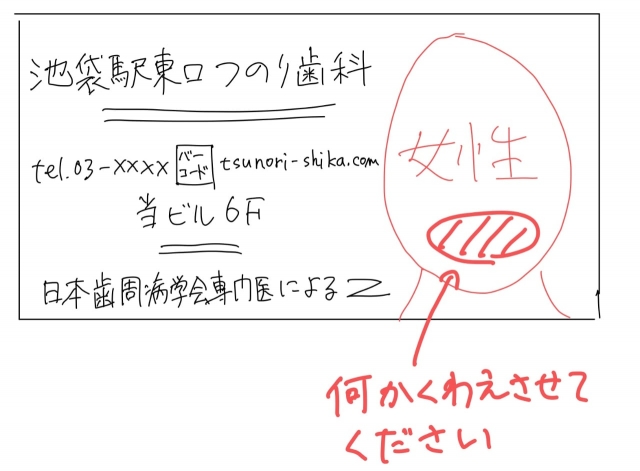 池袋駅東口つのり歯科
tel.03-xxxx バーコード tsunori-shika.com
当ビル6F
日本歯周病学会専門医による
女性
何かくわえさせて
ください